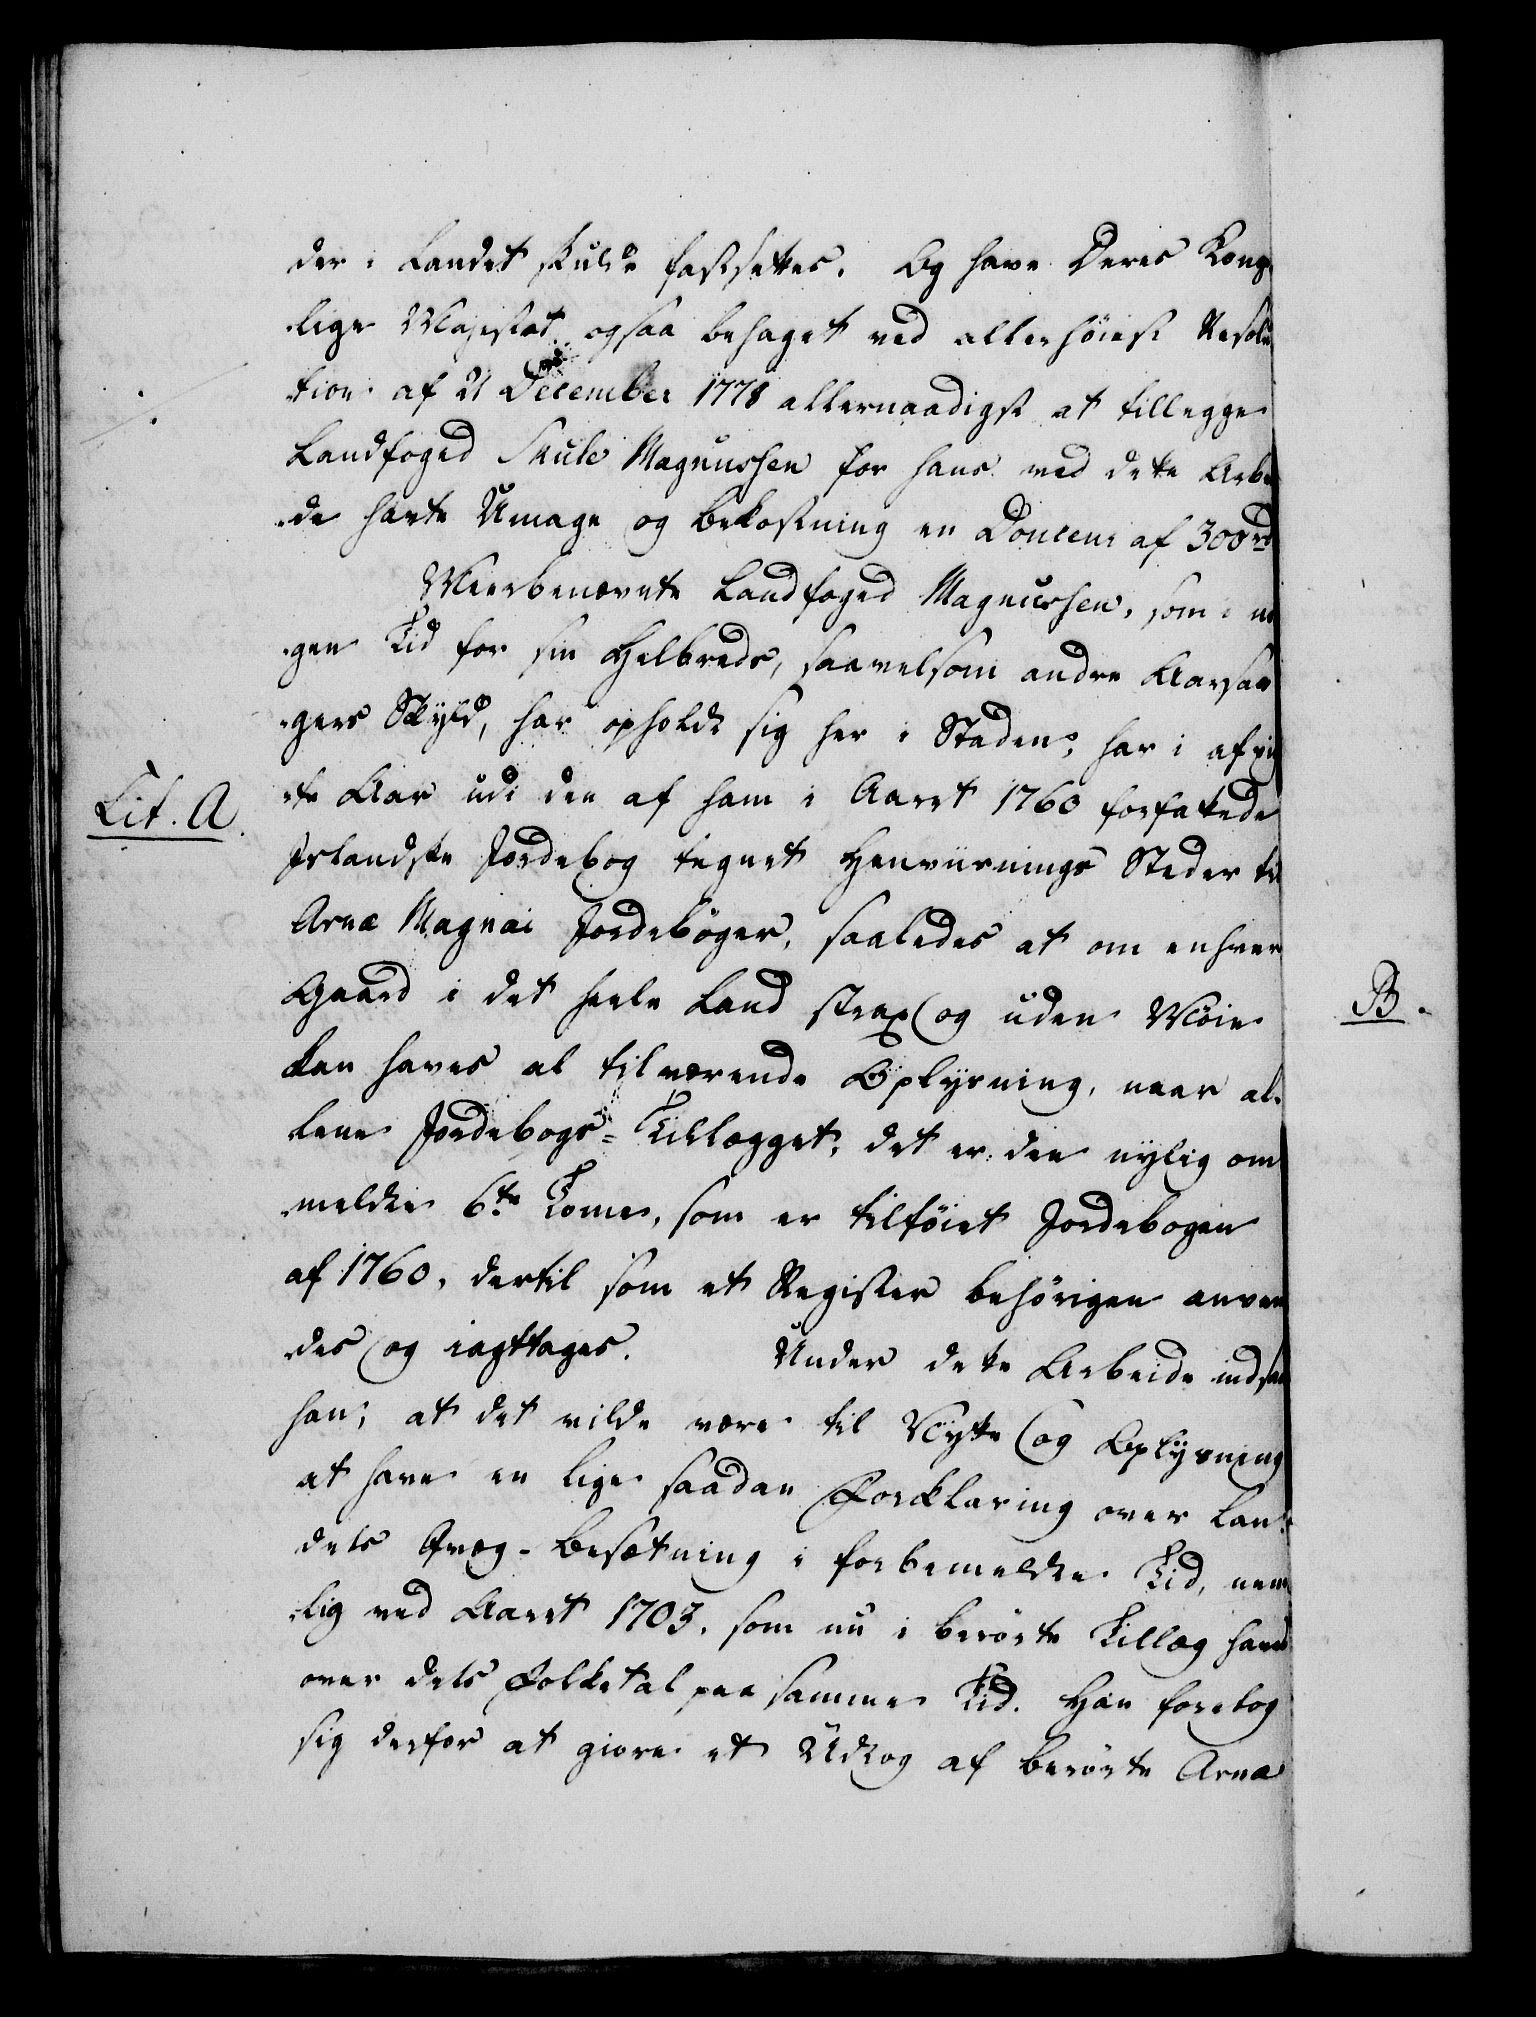 der i Landet skulde fastsettes. Og have Deres Kong-
lige Majestæt ogsaa behaget ved allerhöiest Resolu
tion af 21 December 1778 allernaadigst at tillegge
Landfoged Skule Magnussen for hans ved dette Arbei
de havte Umage og Bekostning en Douceur af 300 rd
Meerbenævnte Landfoged Magnussen, som i no
gen Tid for sin Helbreds, saavelsom andre Aarsa
gers Skyld, har opholdt sig her i Staden, har i afvig
te Aar udi den af ham i Aaret 1760 forfattede
Lit. A.
Islandske Jordebog tegnet Henviisnings Steder til
Arnæ Magnæi Jordebøger, saaledes at om enhver
Gaard i det heele Land strax og uden Möie
B.
kan haves al tilværende Oplysning, naar al-
lene Jordebogs-Tillægget, det er den nylig om
meldte 6te Tome, som er tilföiet Jordebogen
af 1760, dertil som et Register behörigen anven
des og iagttages. Under dette Arbeide indsaae
han, at det vilde være til Nytte og Oplysning
at have en lige saadan Forklaring over Lan-
dets Qvæg-Besætning i forbemeldte Tid, nem
lig ved Aaret 1703, som nu i berörte Tillæg haves
over dets Folketal paa samme Tid. Han foretog
sig derfor at giøre et Udtog af berörte Arnæ